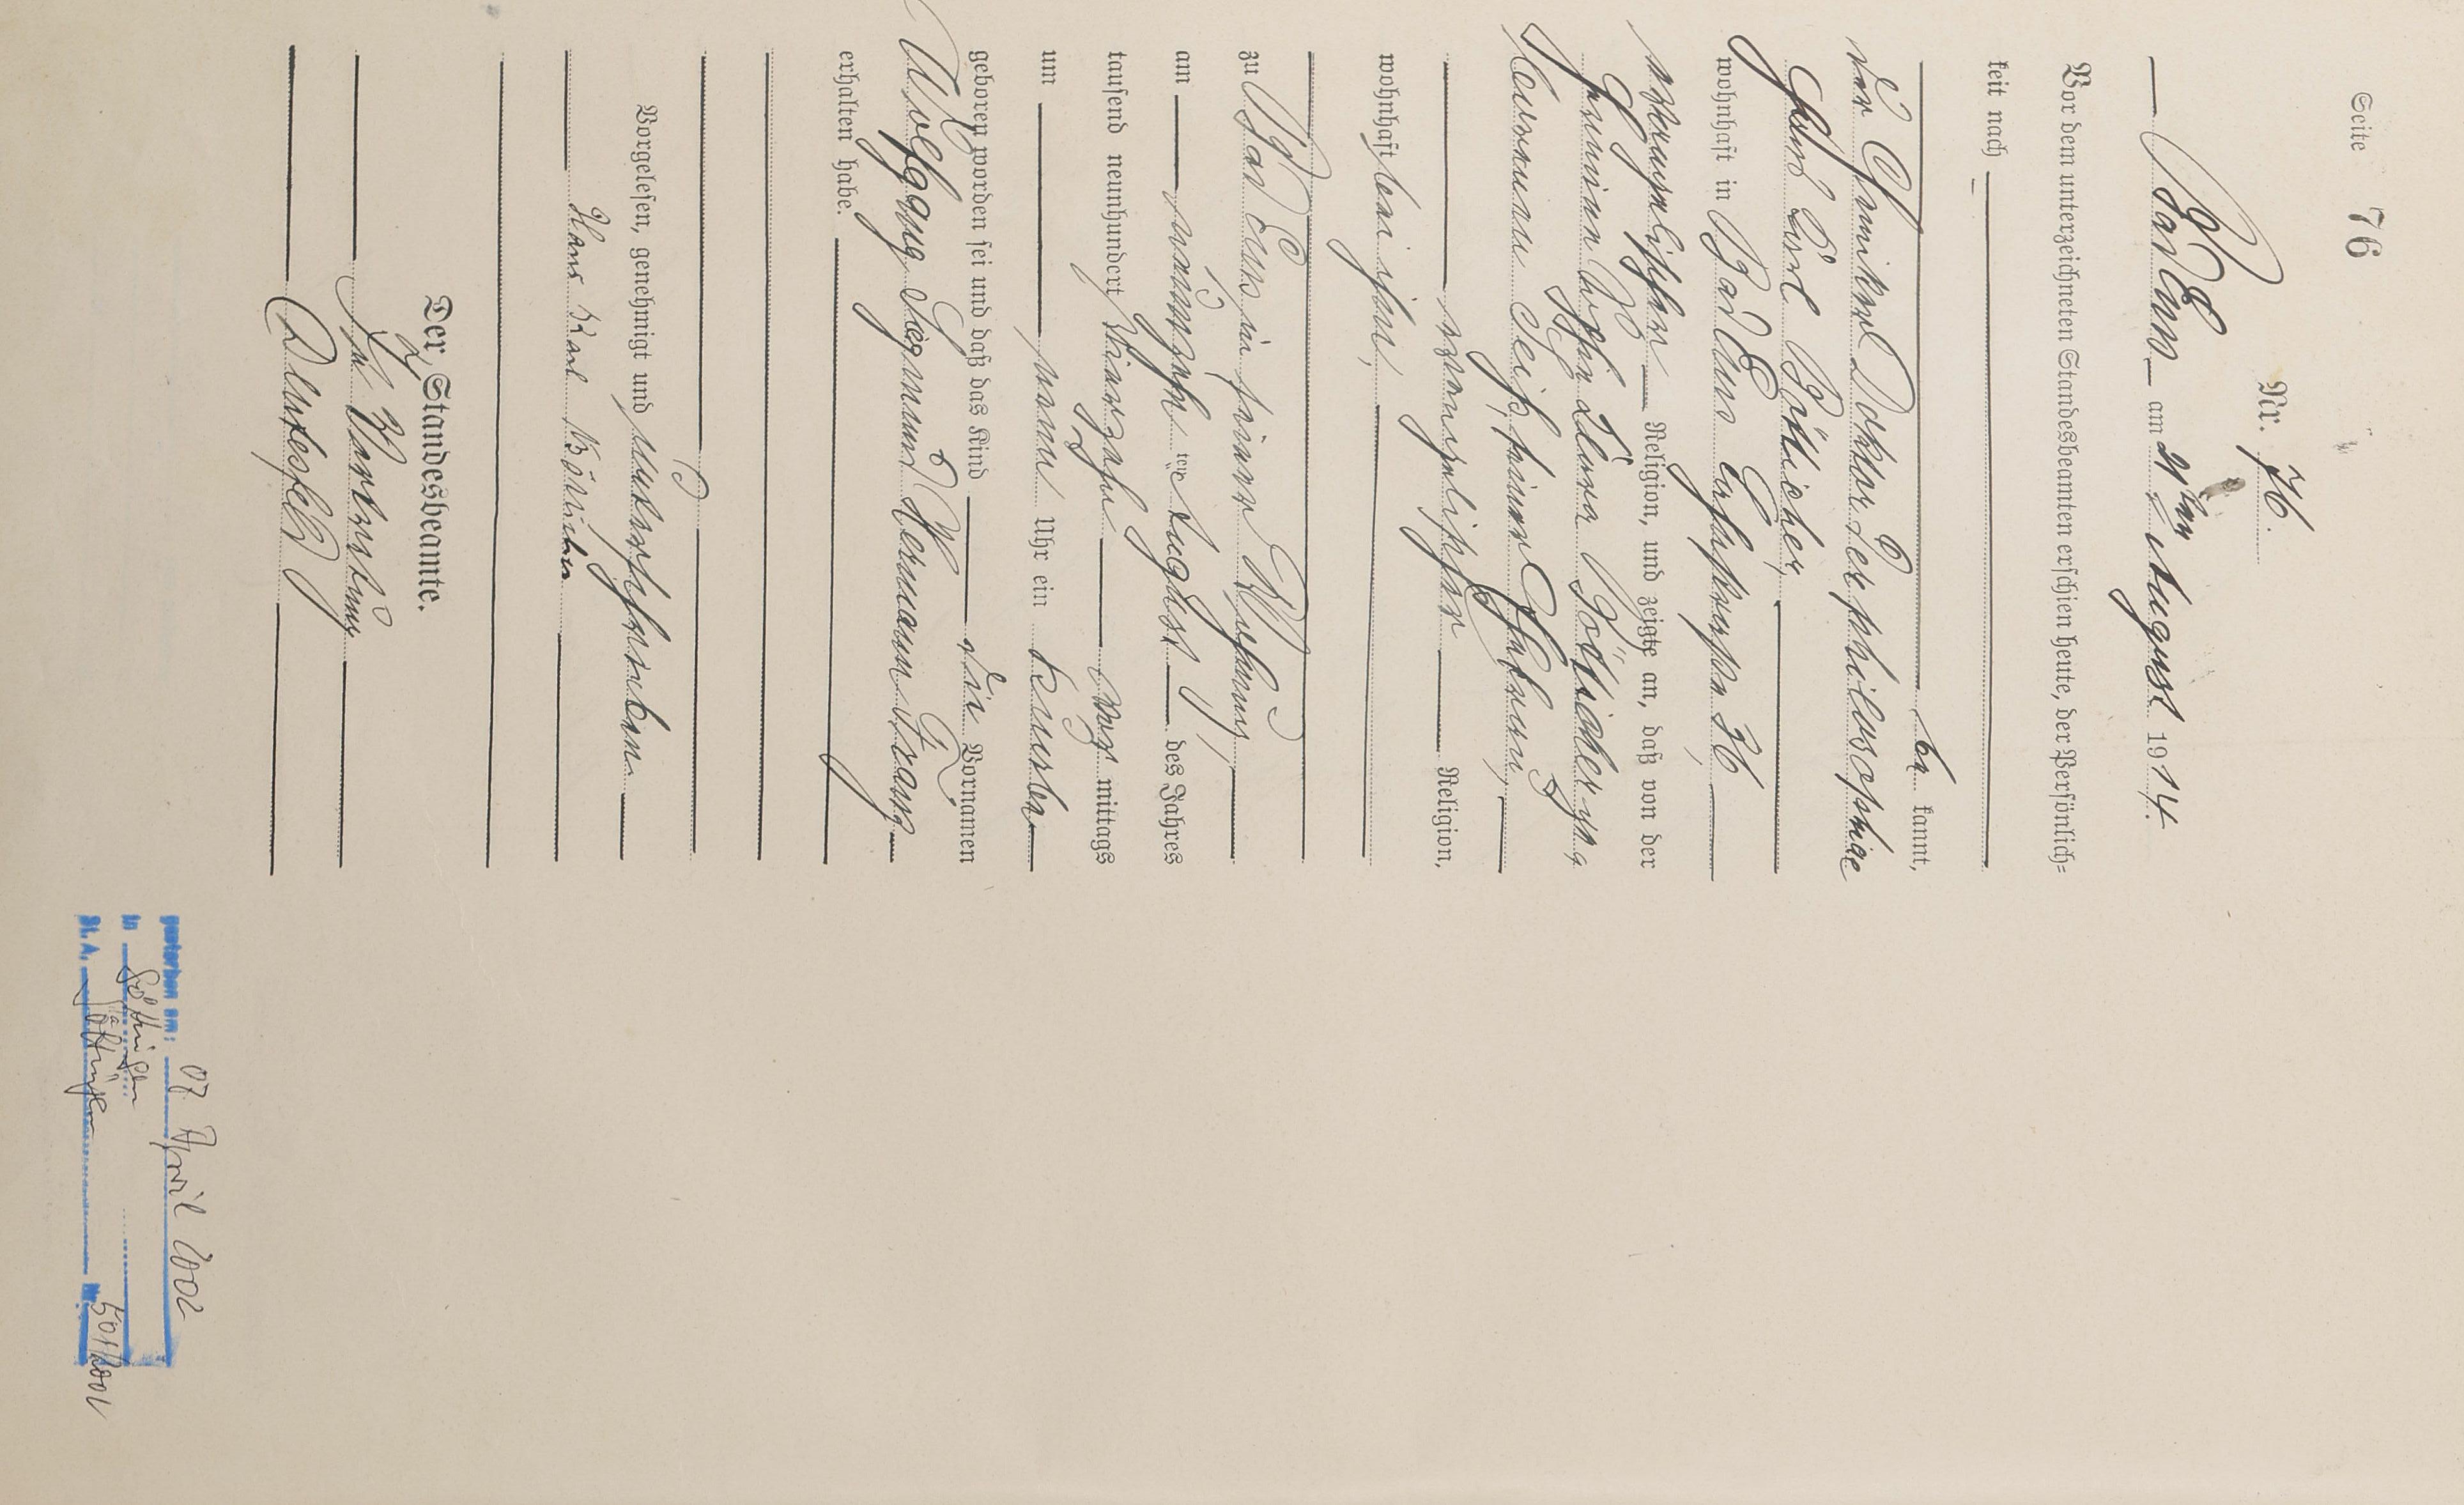 Seite 76
Nr. 76.
Bad Ems am 21ten August 1914.
Vor dem unterzeichneten Standesbeamten erschien heute, der Persönlich-
keit nach
be kannt,
der Chemiker Doktor der philosophiae
Hans Karl Bötticher,
wohnhaft in Bad Ems
evangelischer Religion, und zeigte an, daß von der
Clara Bötticher geb
seiner Ehefrau,
evangelischer Religion,
wohnhaft bei ihm,
zu Bad Ems in seiner Wohnung,
am neunzehnten August des Jahres
tausend neunhundert vierzehn Vor mittags
um neun Uhr ein Knabe
geboren worden sei und daß das Kind die Vornamen
Wolfgang Siegmund Hermann Franz
erhalten habe.
Vorgelesen, genehmigt und unterschrieben
Hans Karl Bötticher
Der Standesbeamte.
In Vertretung
gestorben am: 07 April 2002
in Göttingen
St. A. Göttingen Nr. 501/2002